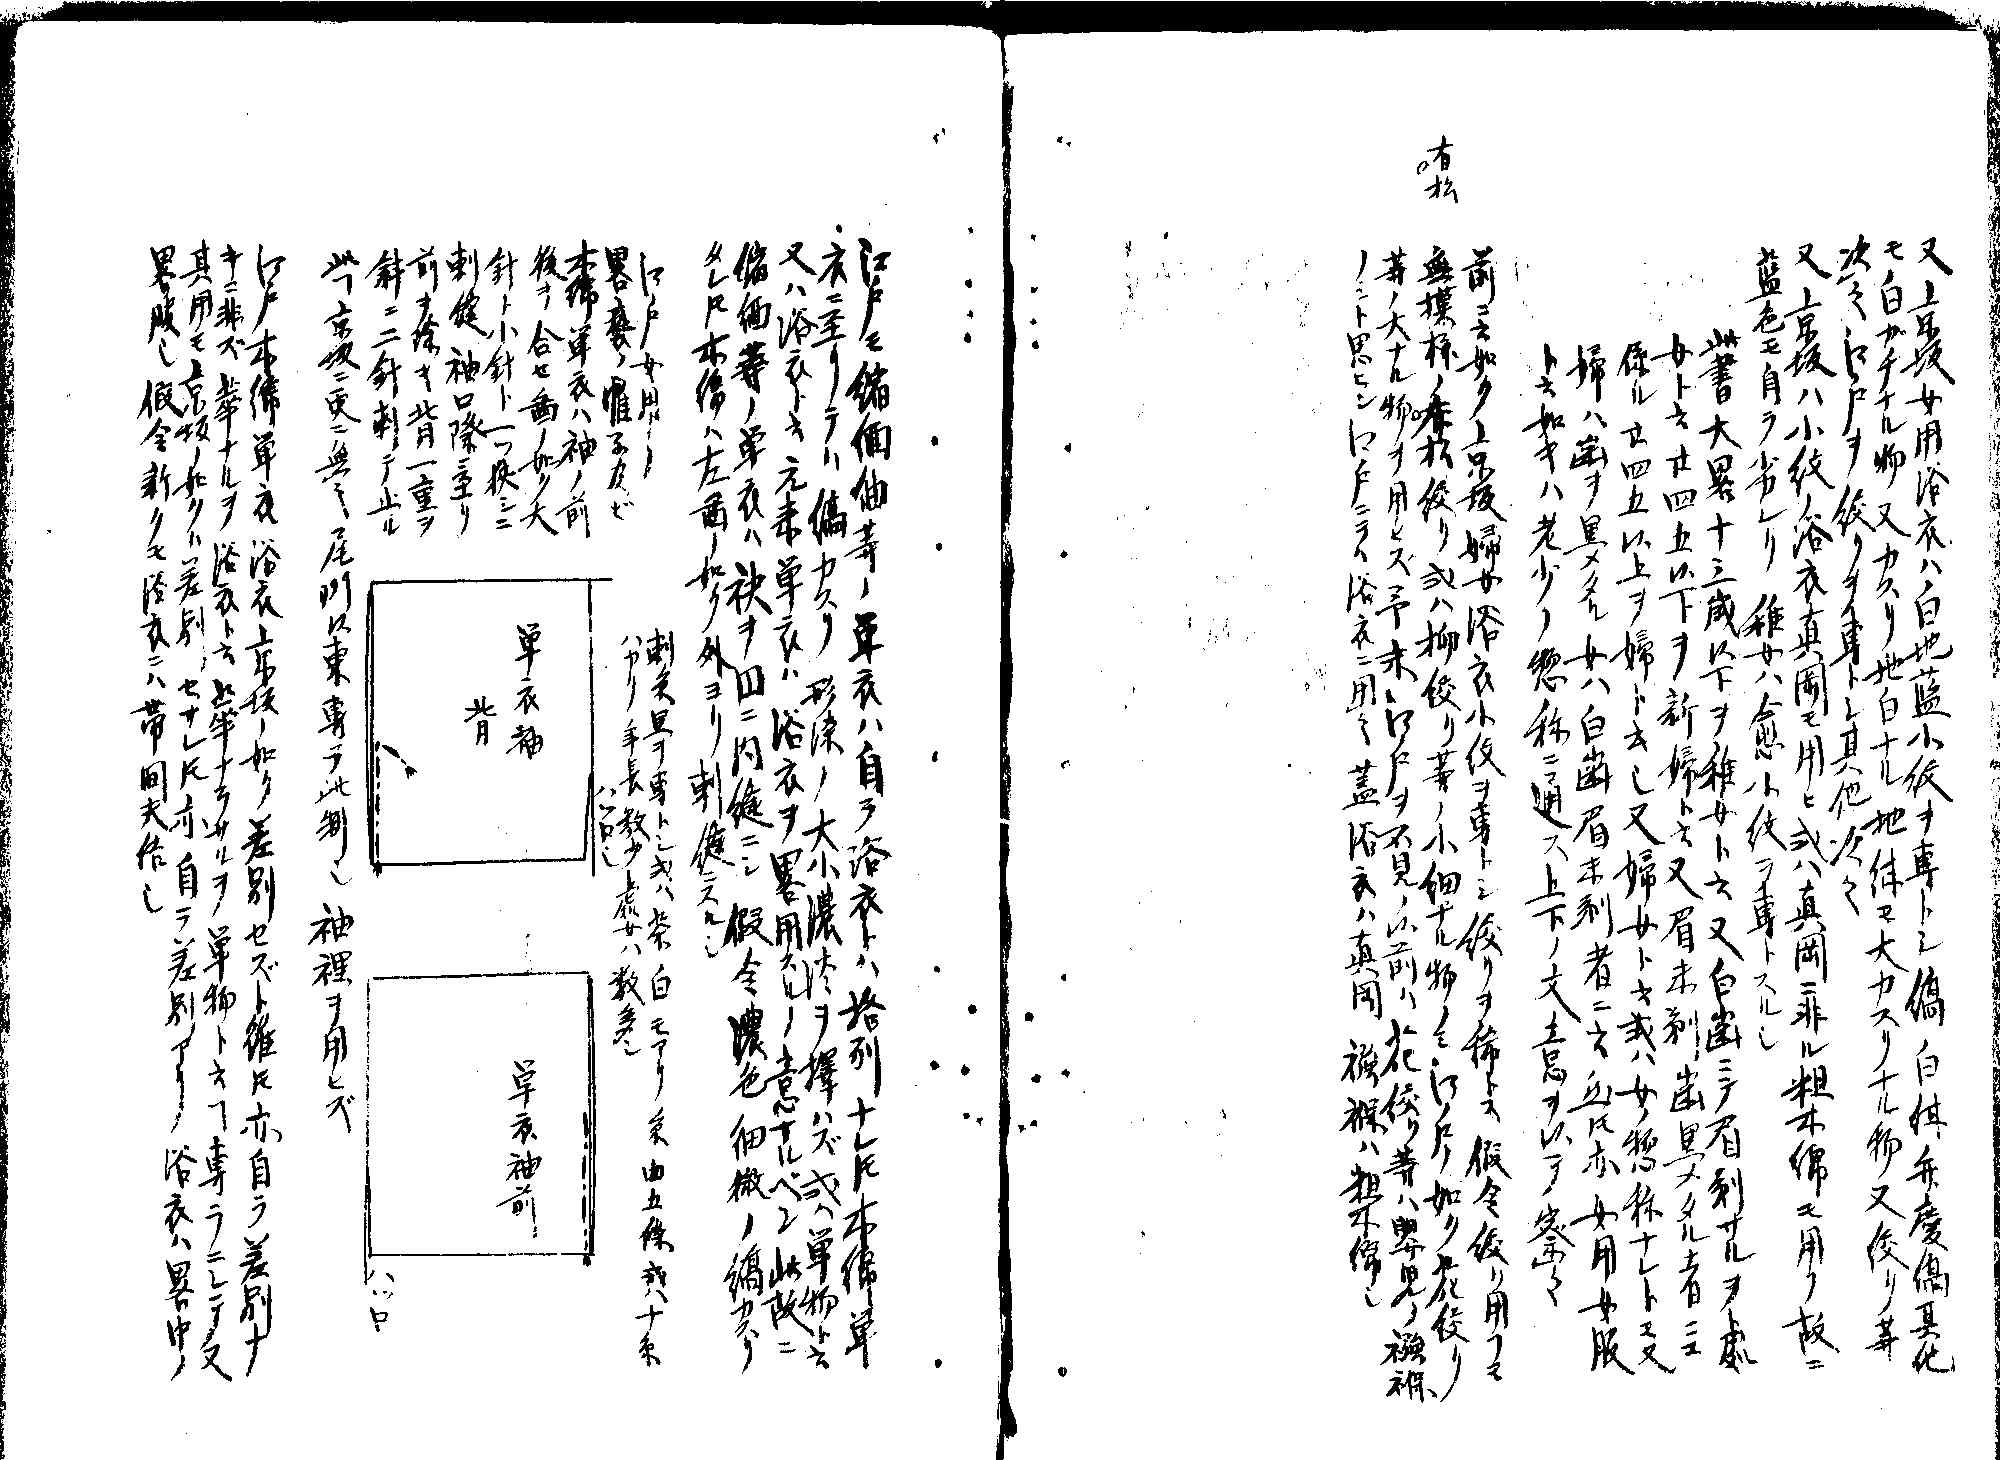 又京坂女用浴衣ハ白地藍小紋ヲ専トシ縞白棋弁慶縞其他
モ白ガチナル物又カスリ地白ナル地体モ大カスリナル物又絞リ等
次之江戸ヲ絞リヲ専トシ其他次之
又京坂ハ小紋ノ浴衣真岡モ用ヒ或ハ真岡ニ非ル粗木綿モ用フ故ニ
藍色モ自ラ劣レリ稚女ハ愈小紋ヲ専トスル也
此書大畧十三歳以下ヲ稚女ト云又白歯ニテ眉剃サルヲ處
女ト云廿四五以下ヲ新婦ト云又眉未剃歯黒メタル者ニモ
係ル廿四五以上ヲ婦ト云也又婦女ト云或ハ女ノ惣称ナレトモ又
婦ハ歯ヲ黒メタル女ハ白歯眉未剃者ニ云也亦女用女服
ト云如キハ老少ノ惣称ニ通ス上下ノ文意ヲ以テ察之
前ニ云如ク京坂婦女浴衣小紋ヲ専トシ絞リヲ稀トス假令絞リ用フモ
無模様ノ有松絞リ或ハ柳絞リ等ノ小細ナル物ノミ江戸ノ如ク花絞リ
有松
等ノ大ナル物ヲ用ヒズ予未江戸ヲ不見以前ハ花絞リ等ハ嬰児ノ襁褓
ノミト思ヒシ江戸ニテハ浴衣ニ用之蓋浴衣ハ真岡襁褓ハ粗木綿也
江戸モ縮緬紬等ノ単衣ハ自ラ浴衣トハ格別ナレ𪜈木綿単
衣ニ至リテハ縞カスリ形染ノ大小濃淡ヲ擇ハズ或ハ単物ト云
又ハ浴衣ト云元来単衣ハ浴衣ヲ畧用スルノ意ナルベシ此故ニ
縮緬等ノ単衣ハ袂ヲ四ニ内縫ニシ假令濃色細微ノ縞カスリ
タレ𪜈木綿ハ左図ノ如ク外ヨリ刺縫ニスル也
江戸女用ノ
畧褻ノ帷子及ビ
木綿単衣ハ袖ノ前
後ヲ合セ図ノ如ク大
針ト小針ト一つ挾ミニ
刺縫袖口際ニ至リ
前ヲ除キ背一重ヲ
斜ニ二針刺テ止ル
刺糸黒ヲ専トシ或ハ茶白モアリ糸由五條或ハ十糸
ハカリ年長数少處女ハ数多シ
単衣袖
背
八ツ口也
単衣袖前
八ツ口
此丁京坂ニ更ニ無之尾州以東専ラ此制也袖裡ヲ用ヒズ
江戸木綿単衣浴衣京坂ノ如ク差別セズト雖𪜈亦自ラ差別ナ
キニ非ズ華ナルヲ浴衣ト云華ナラサルヲ単物ト云丁専ラニシテ又
其用モ京坂ノ如クハ差別セナレ𪜈亦自ラ差別アリ浴衣ハ畧中ノ
畧服也假令新タモ浴衣ニハ帯間夫倍也